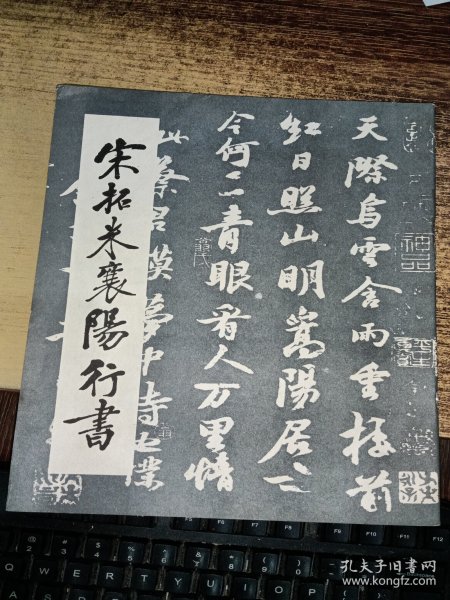 宋拓米襄陽行書
天際烏雲含雨重樓前
紅日照山明嵩陽居士
今何在青眼看人万里情
此蔡君謨夢中詩也僕
神品
董氏
孔夫子旧书网
www.kongfz.com